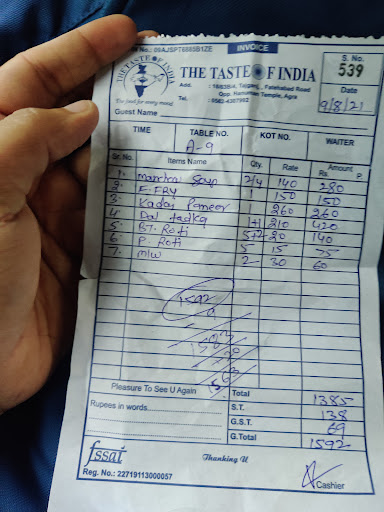 No.: 09AJSPT6885B1ZE INVOICE
THE TASTE OF INDIA
The food for every mood
THE TASTE OF INDIA
Add. : 16/63B-A, Tajganj, Fatehabad Road
Opp. Hanuman Temple, Agra
Tel. : 0562-4307992
S. No.
539
Date
9/8/21
Guest Name
TIME TABLE NO. KOT NO. WAITER
A-9
Sr. No. Items Name Qty. Rate Amount
Rs. P.
1. Manchow Soup 2/4 140 280
2. F. FRY 1 150 150
3. Kadai Paneer 1 260 260
4. Dal tadka 1+1 210 420
5. BT. Roti 5+2 20 140
6. P. Roti 5 15 75
7. M/W 2 30 60
1592
9
Pleasure To See U Again Total 1385
Rupees in words S.T. 138
G.S.T. 69
G.Total 1592
fssai
Thanking U
Reg. No.: 22719113000057
Cashier